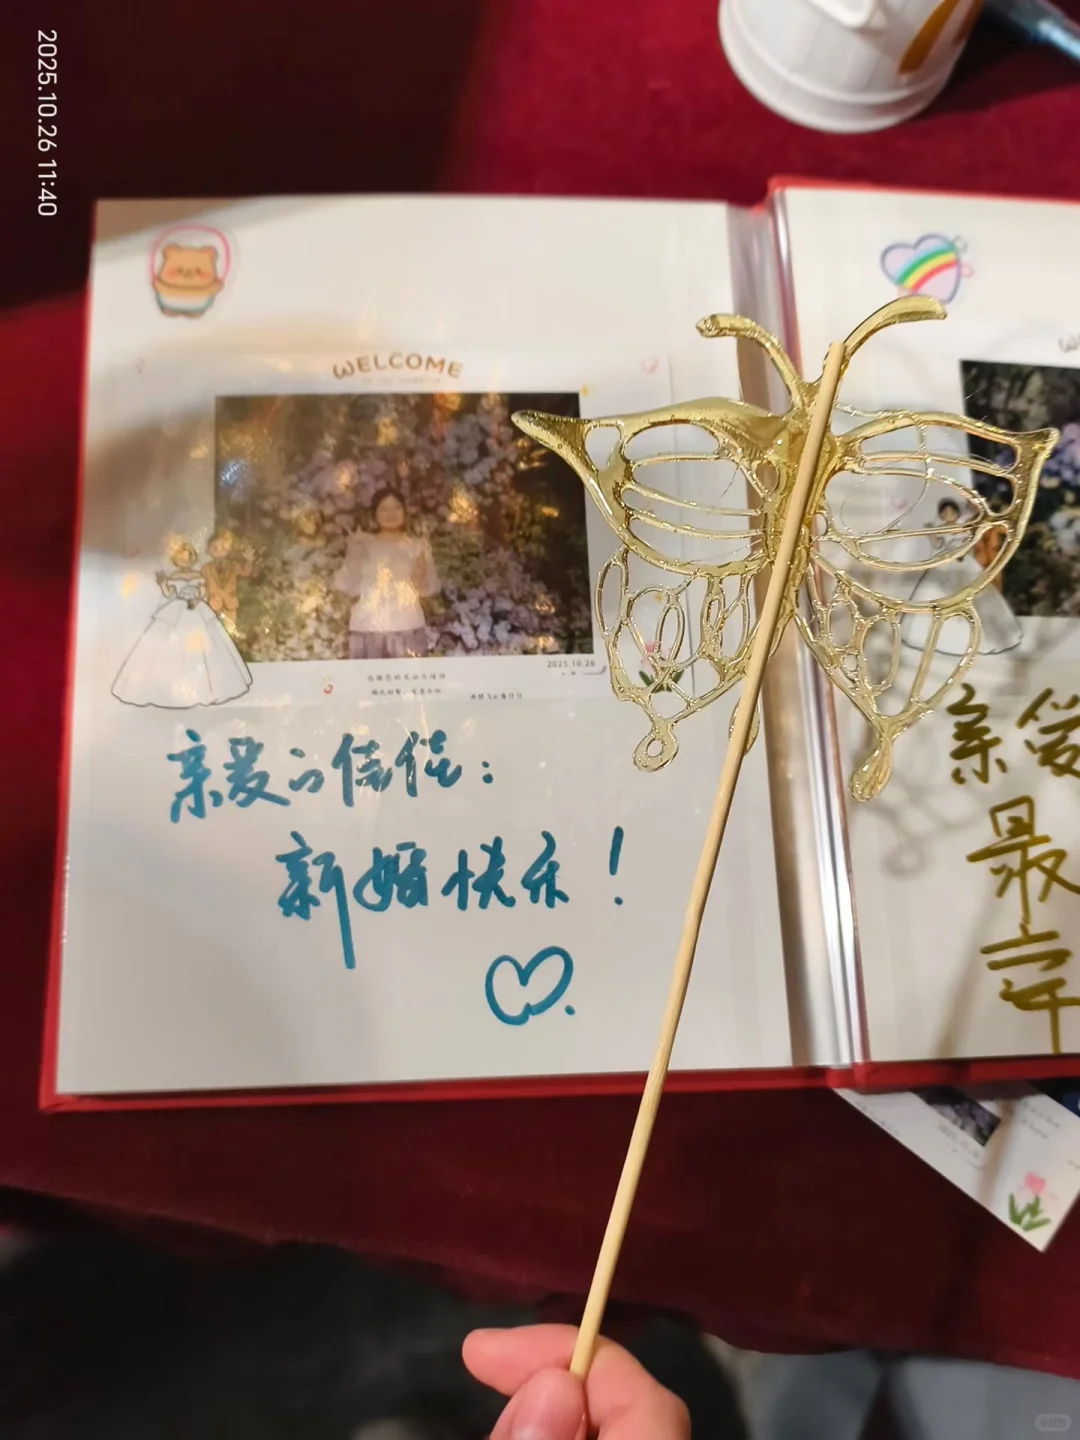 2025.10.26 11:40
WELCOME
2025.10.26
亲爱的佳佳：
新婚快乐！
亲爱
最